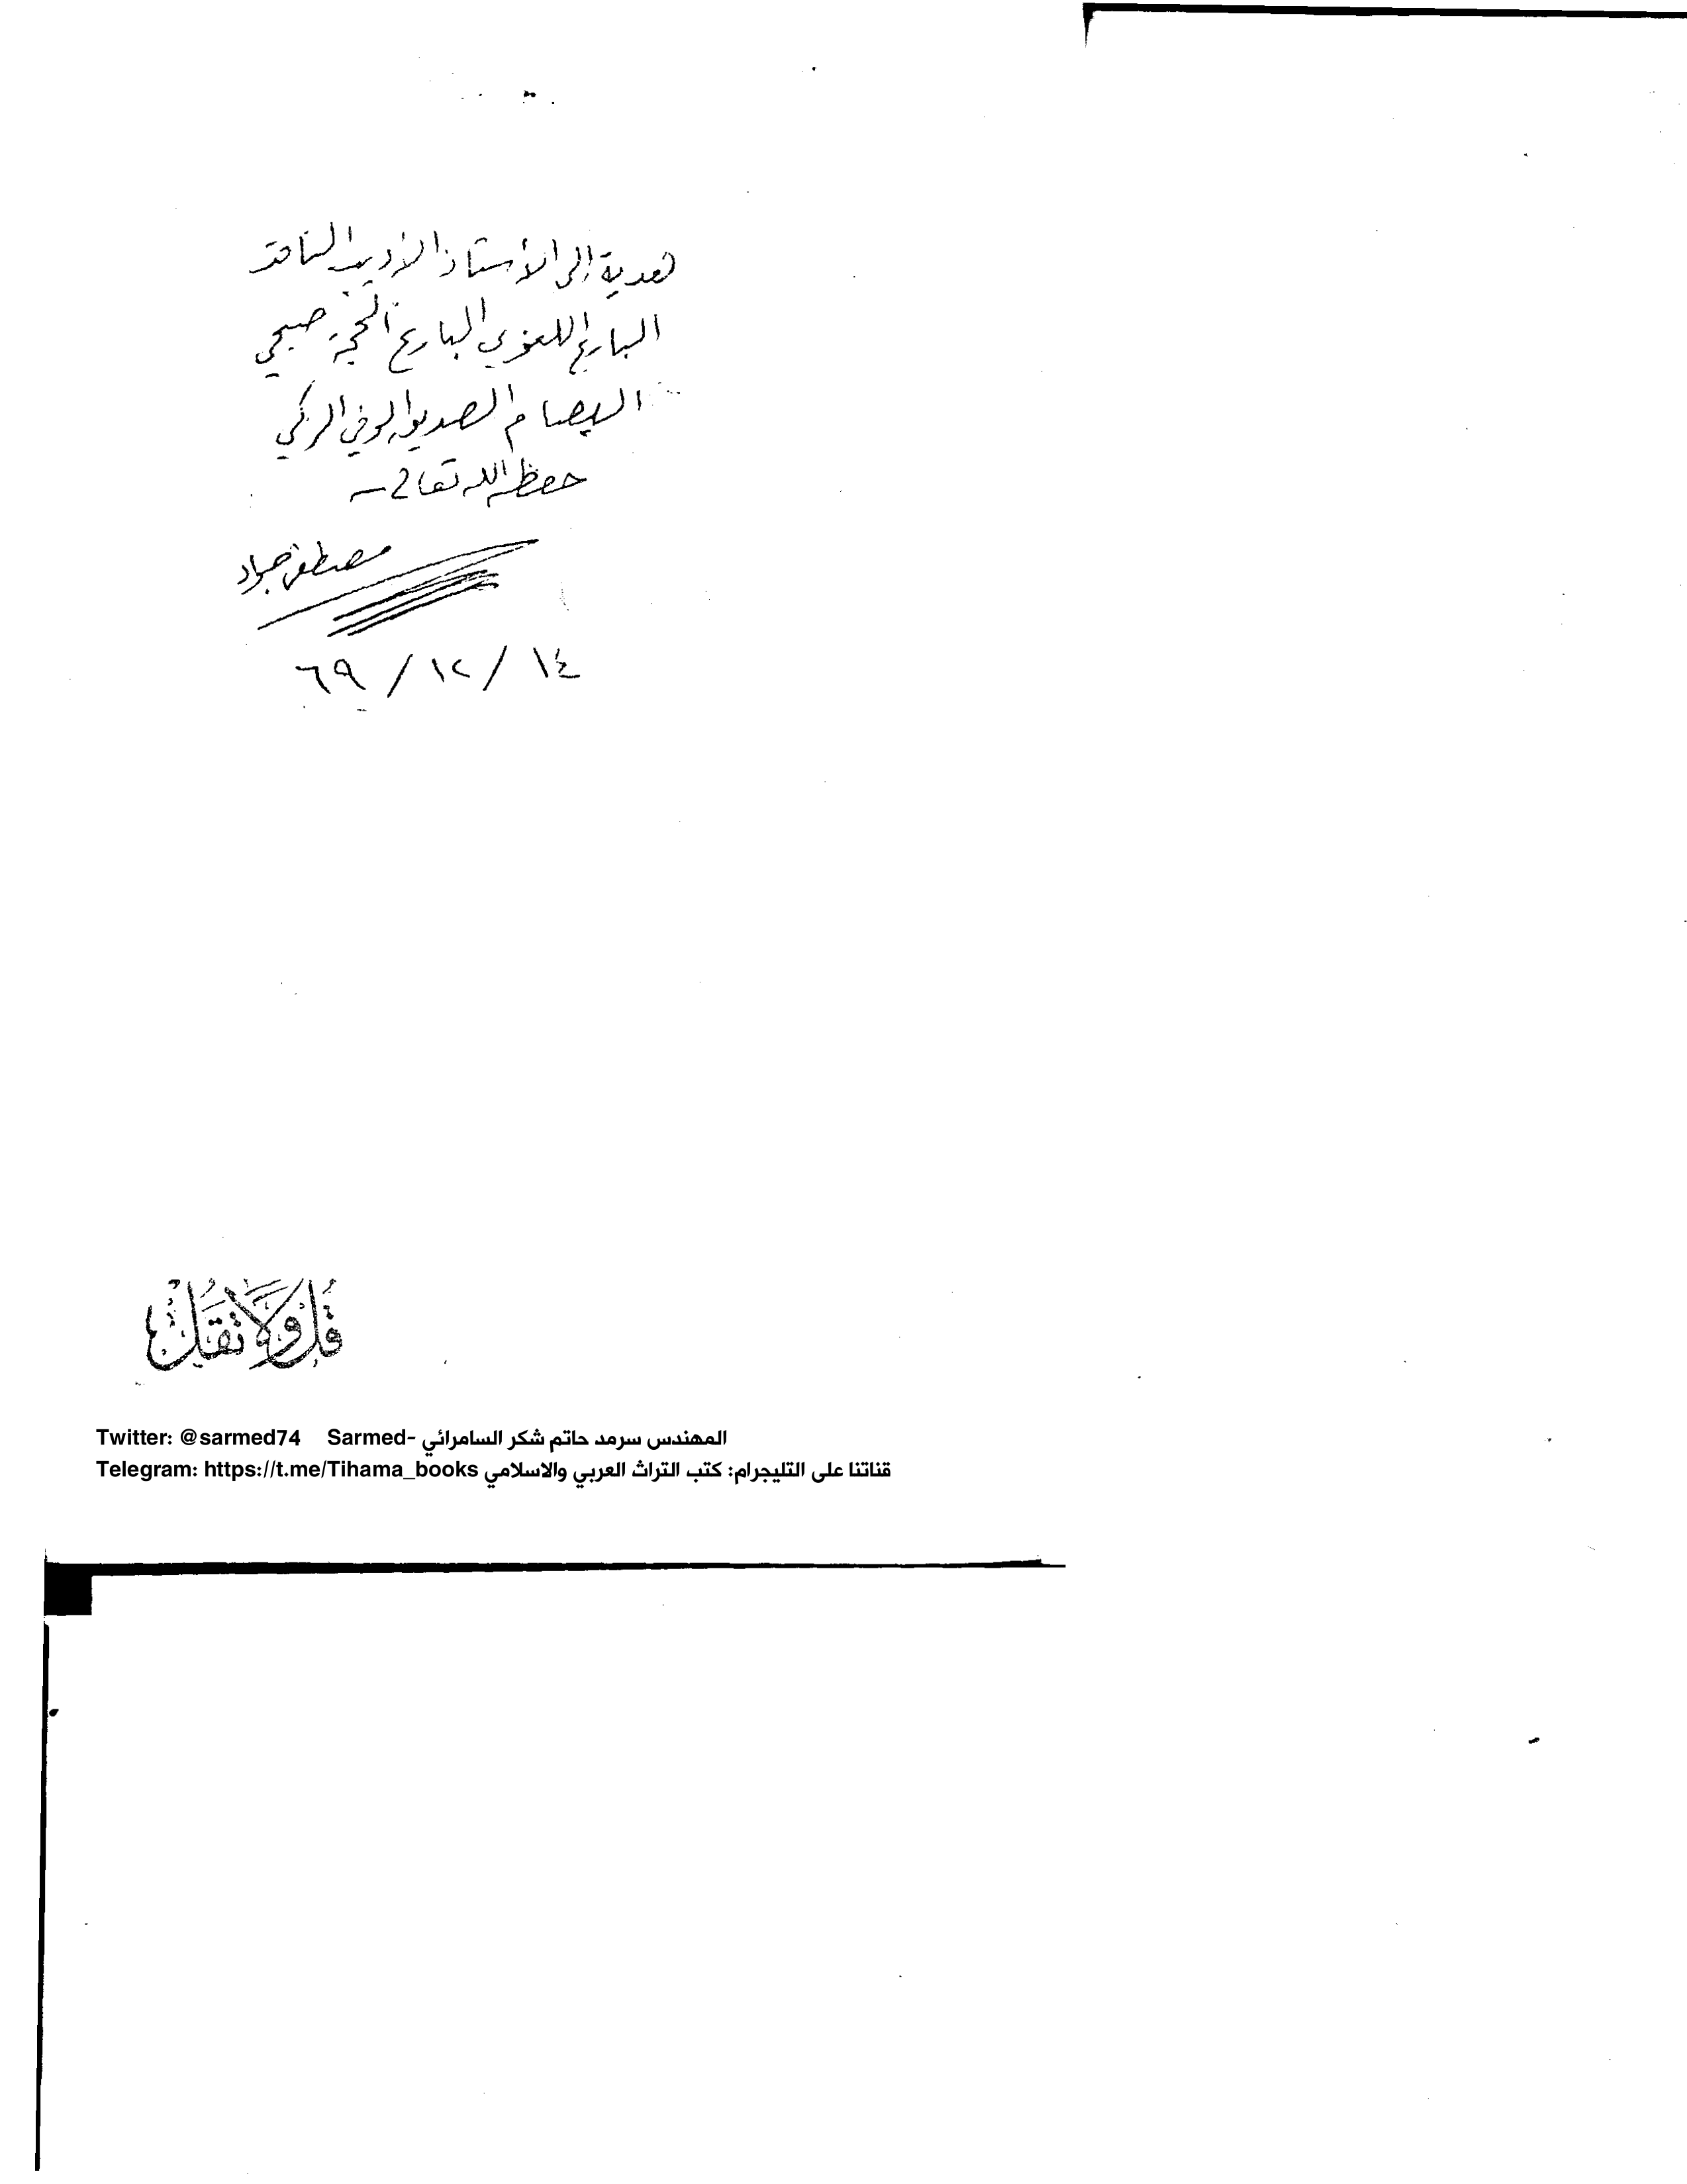 هدية إلى الأستاذ الأديب الناقد
البارع اللغوي البارع الحجة صبحي
البصام الصديق الوفي الزكي
حفظه الله تعالى
مصطفى جواد
١٤ / ١٢ / ٦٩
قُل وَلَا تَقُل
Twitter: @sarmed74 Sarmed- المهندس سرمد حاتم شكر السامرائي
Telegram: https://t.me/Tihama_books قناتنا على التليجرام: كتب التراث العربي والاسلامي